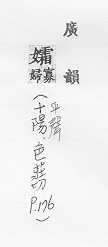 廣韻
孀
寡
婦
（平聲
十陽．色莊切
P.176）